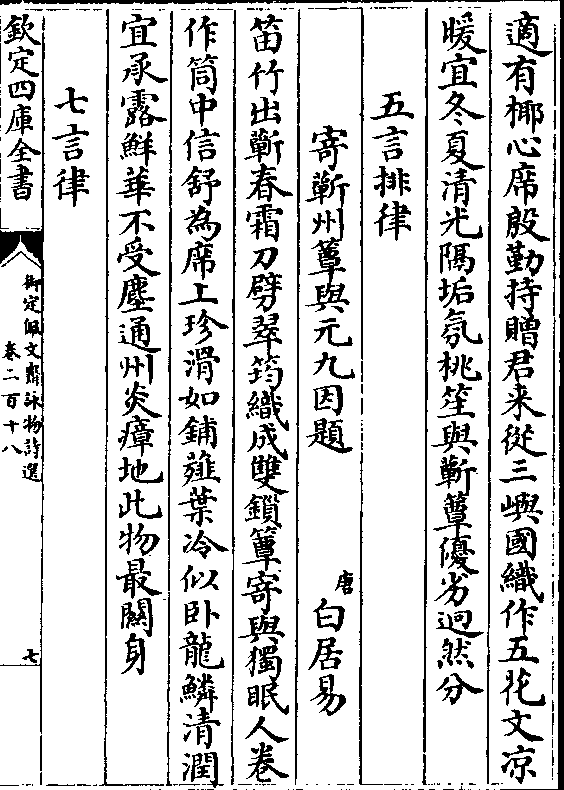 適有椰心席殷勤持贈君来從三嶼國織作五花文凉
暖宜冬夏清光隔垢氛桃笙與蘄簟優劣迥然分
五言排律
寄蘄州簟與元九因題　唐　白居易
笛竹出蘄春霜刀劈翠筠織成雙鎖簟寄與獨眠人卷
作筒中信舒為席上珍滑如鋪薤葉冷似卧龍鱗清潤
宜承露鮮華不受塵通州炎瘴地此物最關身
七言律
欽定四庫全書
御定佩文齋詠物詩選
卷二百十八
七